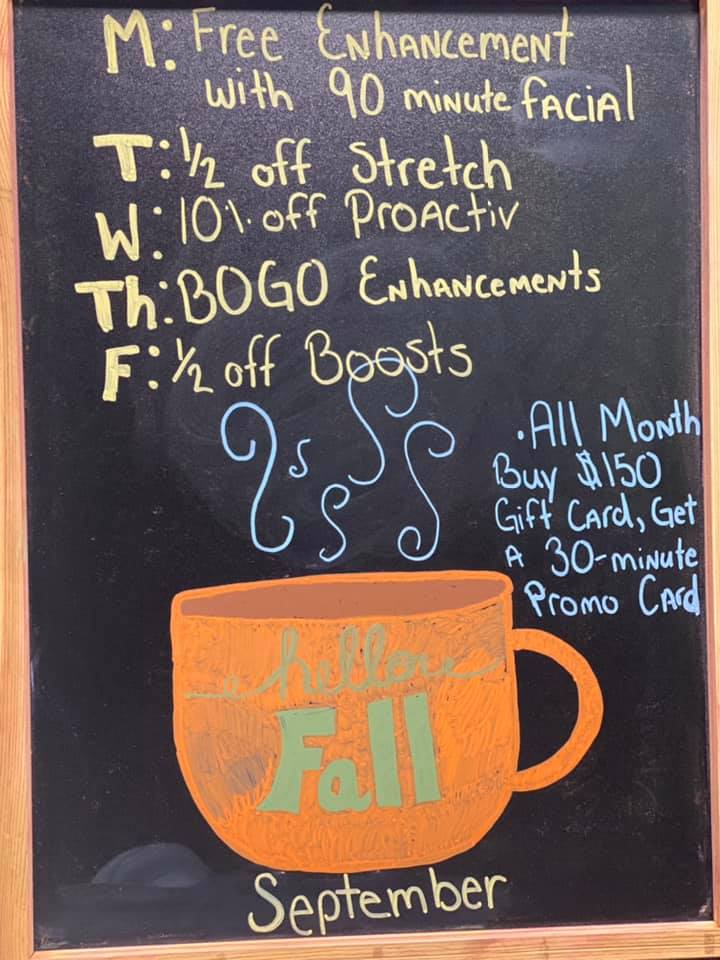 M: Free Enhancement
with 90 minute facial
T: 1/2 off Stretch
W: 10% off Proactiv
Th: BOGO Enhancements
F: 1/2 off Boosts
• All Month
Buy $150
Gift Card, Get
A 30-minute
Promo Card
hello
Fall
September